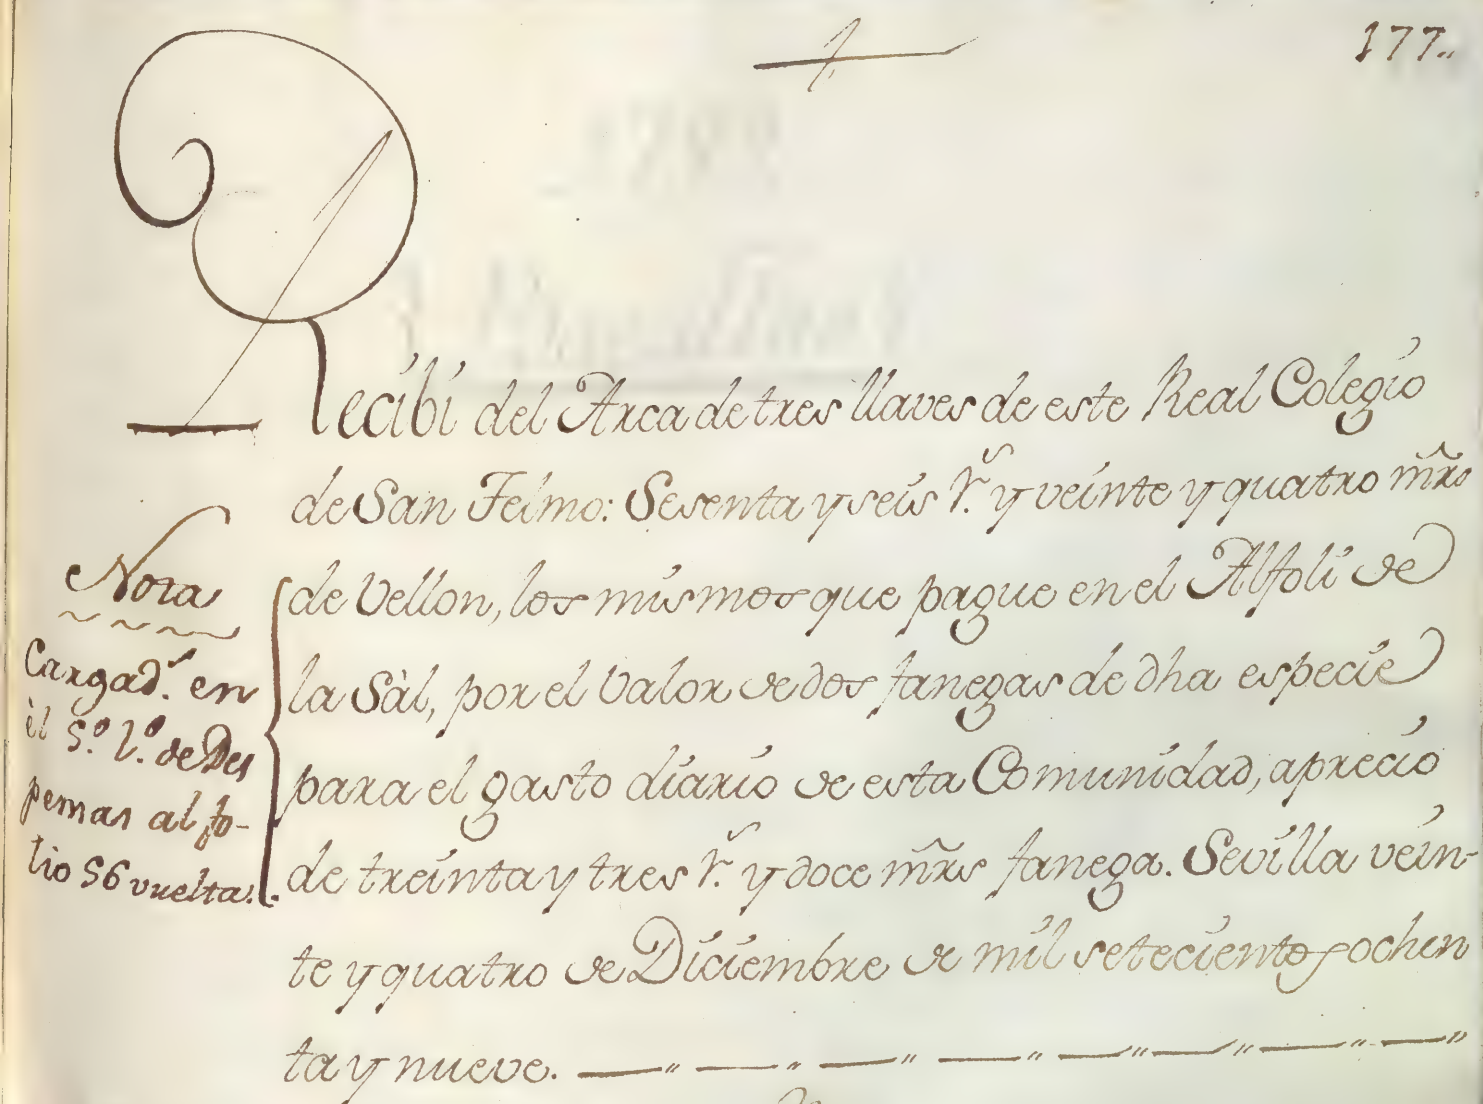 177..
Recibi del Arca de tres llaves de este Real Colegio
de San Telmo: Sesenta y seis r.ˢ y veinte y quatro mr̃s
de Vellon, los mismos que pague en el Alfoli de
la Sàl, por el Valor de dos fanegas de dha especie
para el gasto diario de esta Comunidad, a precio
de treinta y tres r.ˢ y doce mr̃s fanega. Sevilla vein-
te y quatro de Diciembre de mil setecientos ochen
ta y nueve.
Nota
Cargad.ˢ en
èl 5.º l.º de Des
pensas al fo-
lio 56 vuelta.